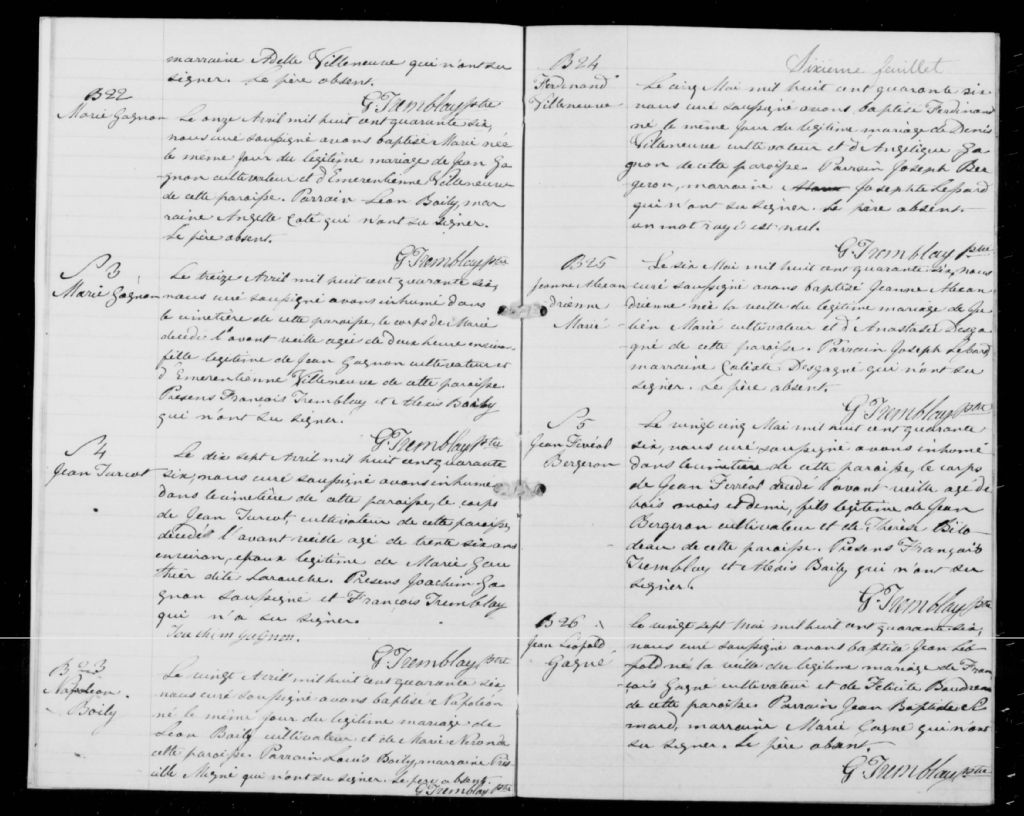 marraine Adelle Villeneuve qui n'ont su
signer. Le père absent.
G. Tremblay Ptre
B22
Marie Gagnon
Le onze Avril mil huit cent quarante six,
nous curé soussigné avons baptisé Marie née
le même jour du légitime mariage de Jean Ga-
gnon cultivateur et d'Emerentienne Villeneuve
de cette paroisse. Parrain Léon Boily, mar
raine Angelle Coté qui n'ont su signer.
Le père absent.
G. Tremblay Ptre
S 3
Marie Gagnon
Le treize Avril mil huit cent quarante six,
nous curé soussigné avons inhumé dans
le cimetière de cette paroisse, le corps de Marie
décédé l'avant veille agé de deux heure environ
fille légitime de Jean Gagnon cultivateur et
d'Emerentienne Villeneuve de cette paroisse.
Présens François Tremblay et Alexis Boily
qui n'ont su signer.
G. Tremblay Ptre
S 4
Jean Turcot
Le dix sept Avril mil huit cent quarante
six, nous curé soussigné avons inhumé
dans le cimetière de cette paroisse, le corps
de Jean Turcot, cultivateur de cette paroisse,
décédé l'avant-veille agé de trente six ans
environ, époux légitime de Marie Gau
thier dite Larouche. Présens Joachim Ga-
gnon soussigné et François Tremblay
qui n'a su signer.
Joachim Gagnon.
G. Tremblay Ptre
B 23
Napoléon
Boily
Le vingt Avril mil huit cent quarante six
nous curé soussigné avons baptisé Napoléon
né le même jour du légitime mariage de
Léon Boily cultivateur et de Marie de
cette paroisse. Parrain Louis Boily, marraine
qui n'ont su signer. Le père absent.
G. Tremblay Ptre
Sixième feuillet
B24
Ferdinand
Villeneuve
Le cinq Mai mil huit cent quarante six
nous curé soussigné avons baptisé Ferdinand
né le même jour du légitime mariage de Denis
Villeneuve cultivateur et d'Angélique Ga-
gnon de cette paroisse. Parrain Joseph Ber-
geron, marraine Josephte Lessard
qui n'ont su signer. Le père absent.
un mot rayé est nul.
G. Tremblay Ptre
B25
Jeanne Alexan
drienne
Marié
Le six Mai mil huit cent quarante six, nous
curé soussigné avons baptisé Jeanne Alexan
drienne née la veille du légitime mariage de Ju-
lien Marié cultivateur et d'Anastasie Desga-
gné de cette paroisse. Parrain Joseph
marraine Caliste Desgagné qui n'ont su
signer. Le père absent.
G. Tremblay Ptre
S 5
Jean Ferréol
Bergeron
Le vingt cinq Mai mil huit cent quarante
six, nous curé soussigné avons inhumé
dans le cimetière de cette paroisse, le corps
de Jean Ferréol décédé l'avant-veille agé de
trois mois et demi, fils légitime de Jean
Bergeron cultivateur et de Thérèse Bilo-
deau de cette paroisse. Présens François
Tremblay et Alexis Boily qui n'ont su
signer.
G. Tremblay Ptre
B26
Jean Léopold
Gagné
Le vingt sept Mai mil huit cent quarante six,
nous curé soussigné avons baptisé Jean Léo-
pold né la veille du légitime mariage de Fran
çois Gagné cultivateur et de Félicité Boudreau
de cette paroisse. Parrain Jean Baptiste Si-
mard, marraine Marie Gagné qui n'ont
su signer. Le père absent.
G. Tremblay Ptre